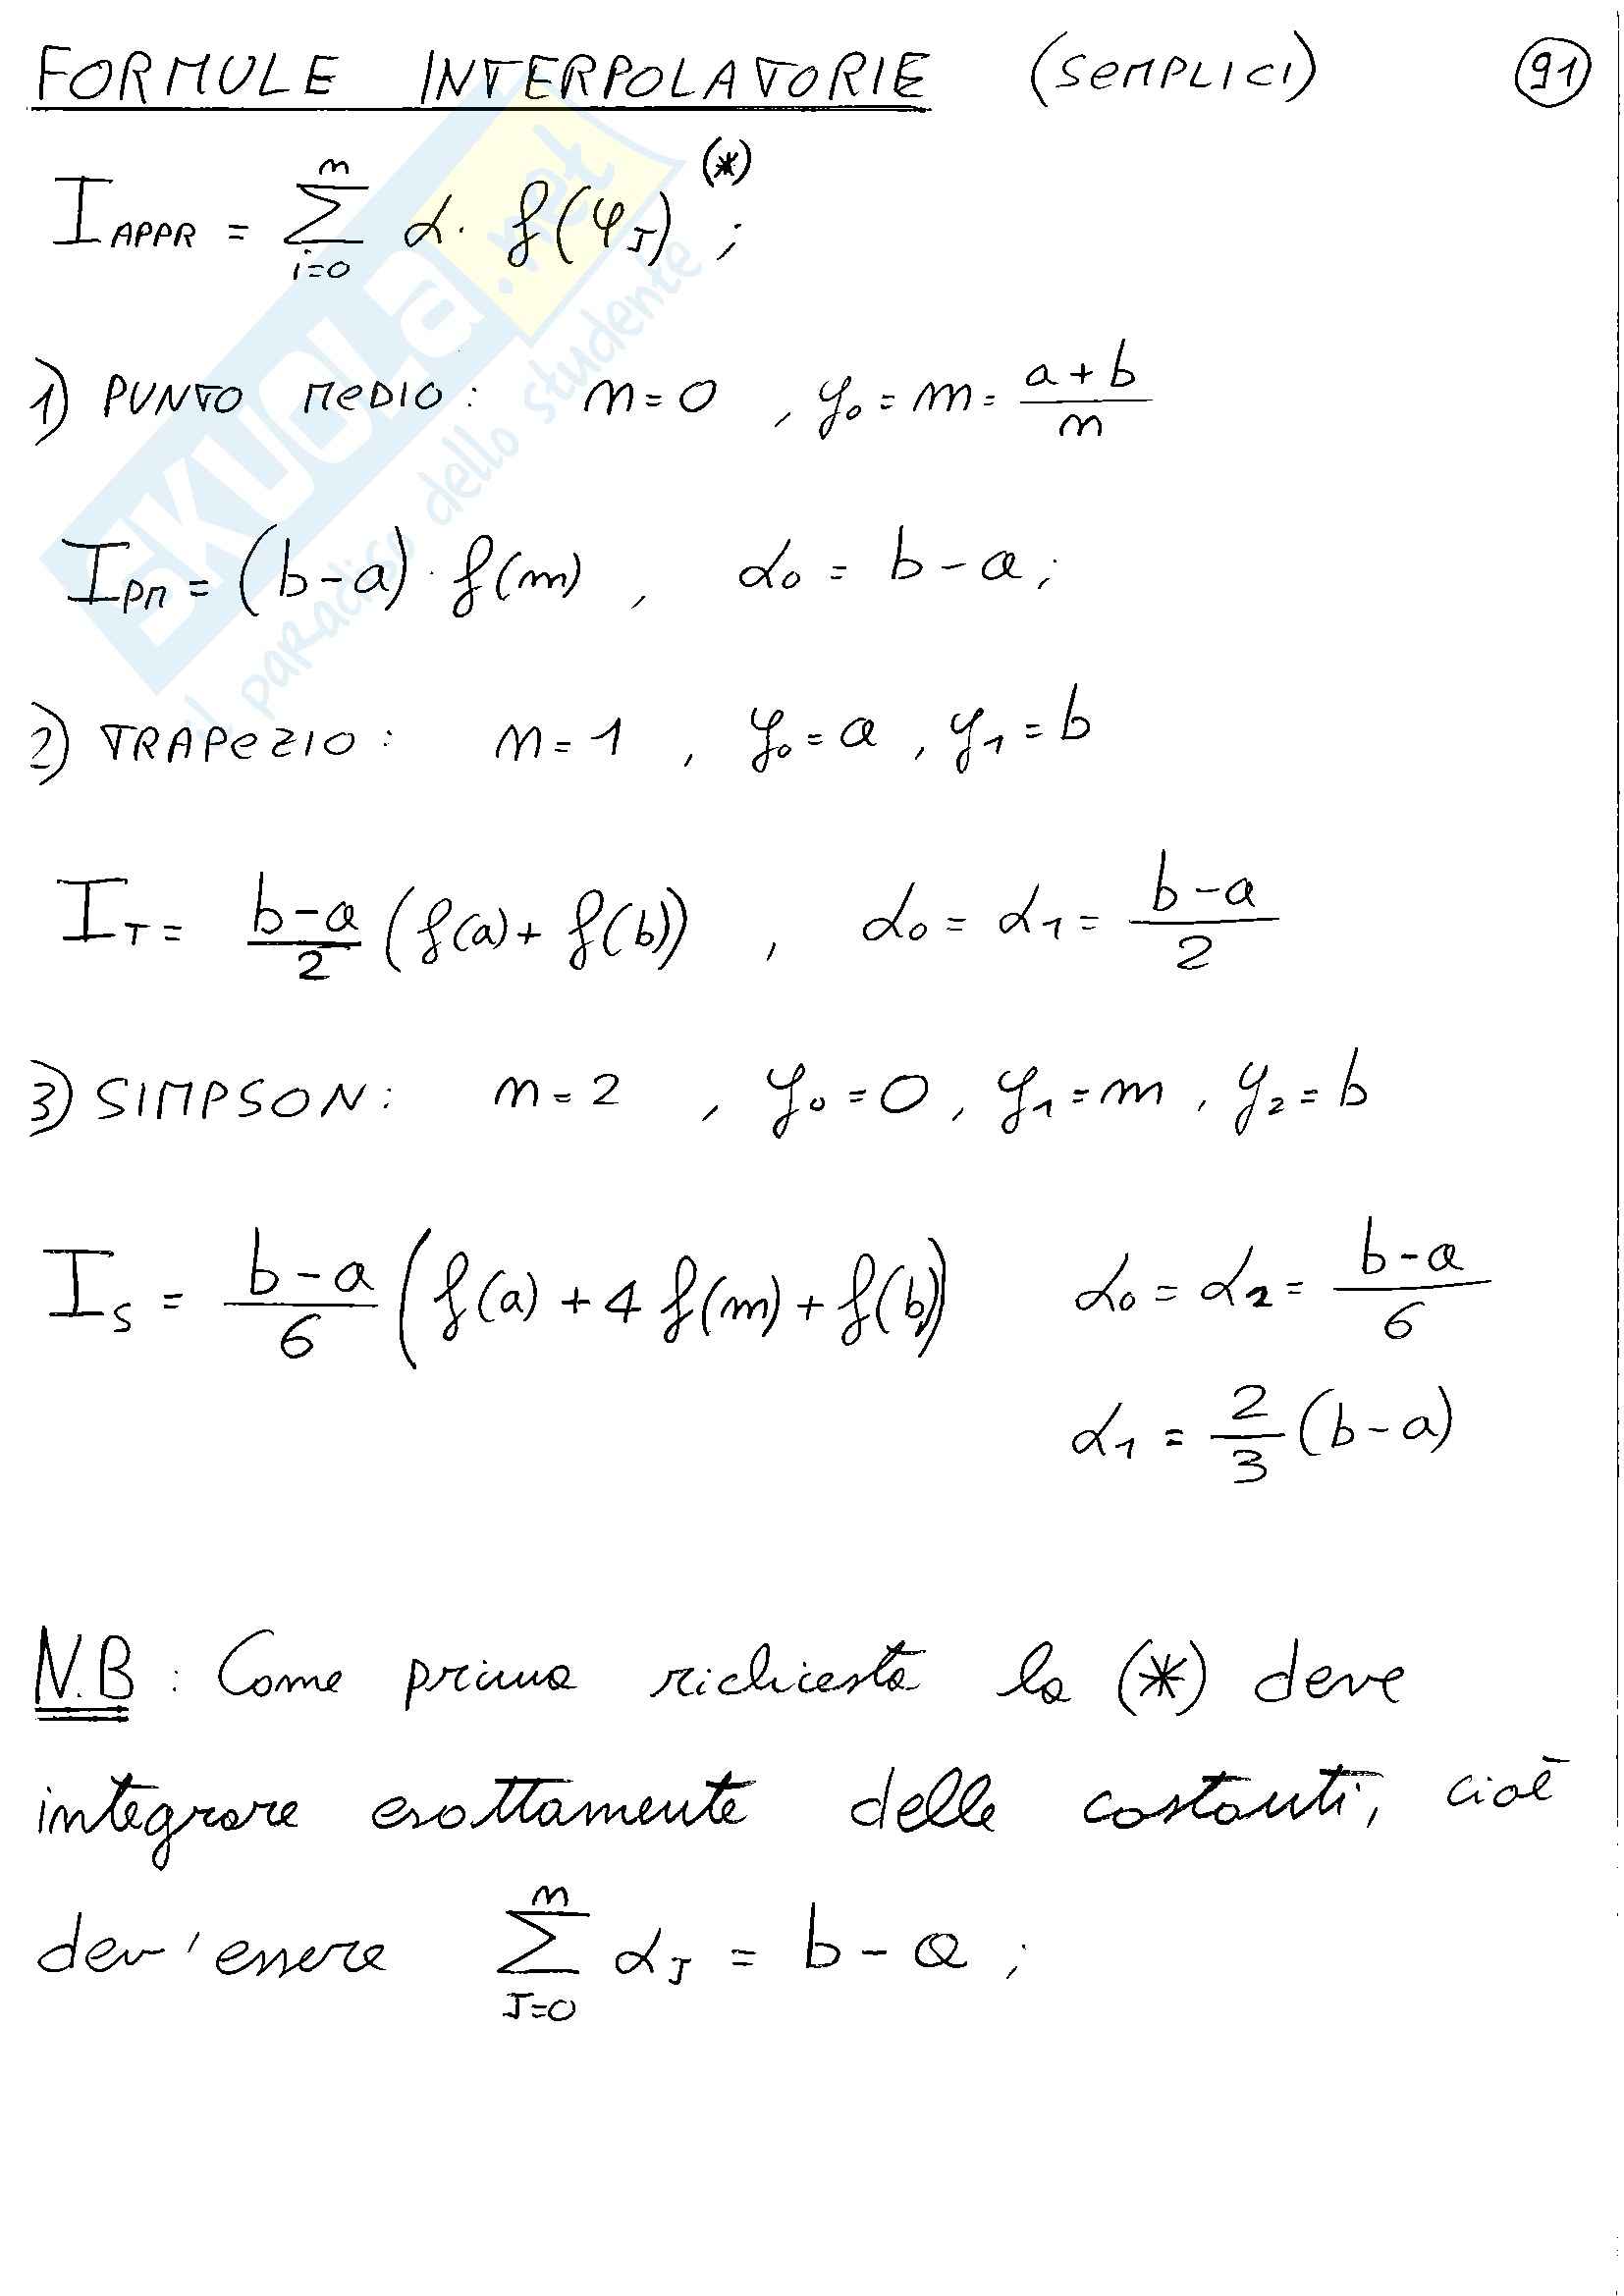 FORMULE INTERPOLATORIE (SEMPLICI) 91
I_APPR = Σ_{i=0}^{n} α · f(φ_J) (*) ;
1) PUNTO MEDIO : n=0 , y₀ = m = (a+b)/n
I_PM = (b-a) · f(m) , α₀ = b-a ;
2) TRAPEZIO : n=1 , y₀=a , y₁=b
I_T = (b-a)/2 (f(a) + f(b)) , α₀ = α₁ = (b-a)/2
3) SIMPSON : n=2 , y₀=0 , y₁=m , y₂=b
I_S = (b-a)/6 (f(a) + 4 f(m) + f(b)) α₀ = α₂ = (b-a)/6
α₁ = 2/3 (b-a)
N.B : Come prima richiesta la (*) deve
integrare esattamente delle costanti, cioè
dev'essere Σ_{J=0}^{n} α_J = b-a ;
SKUOLA.net
il paradiso dello studente